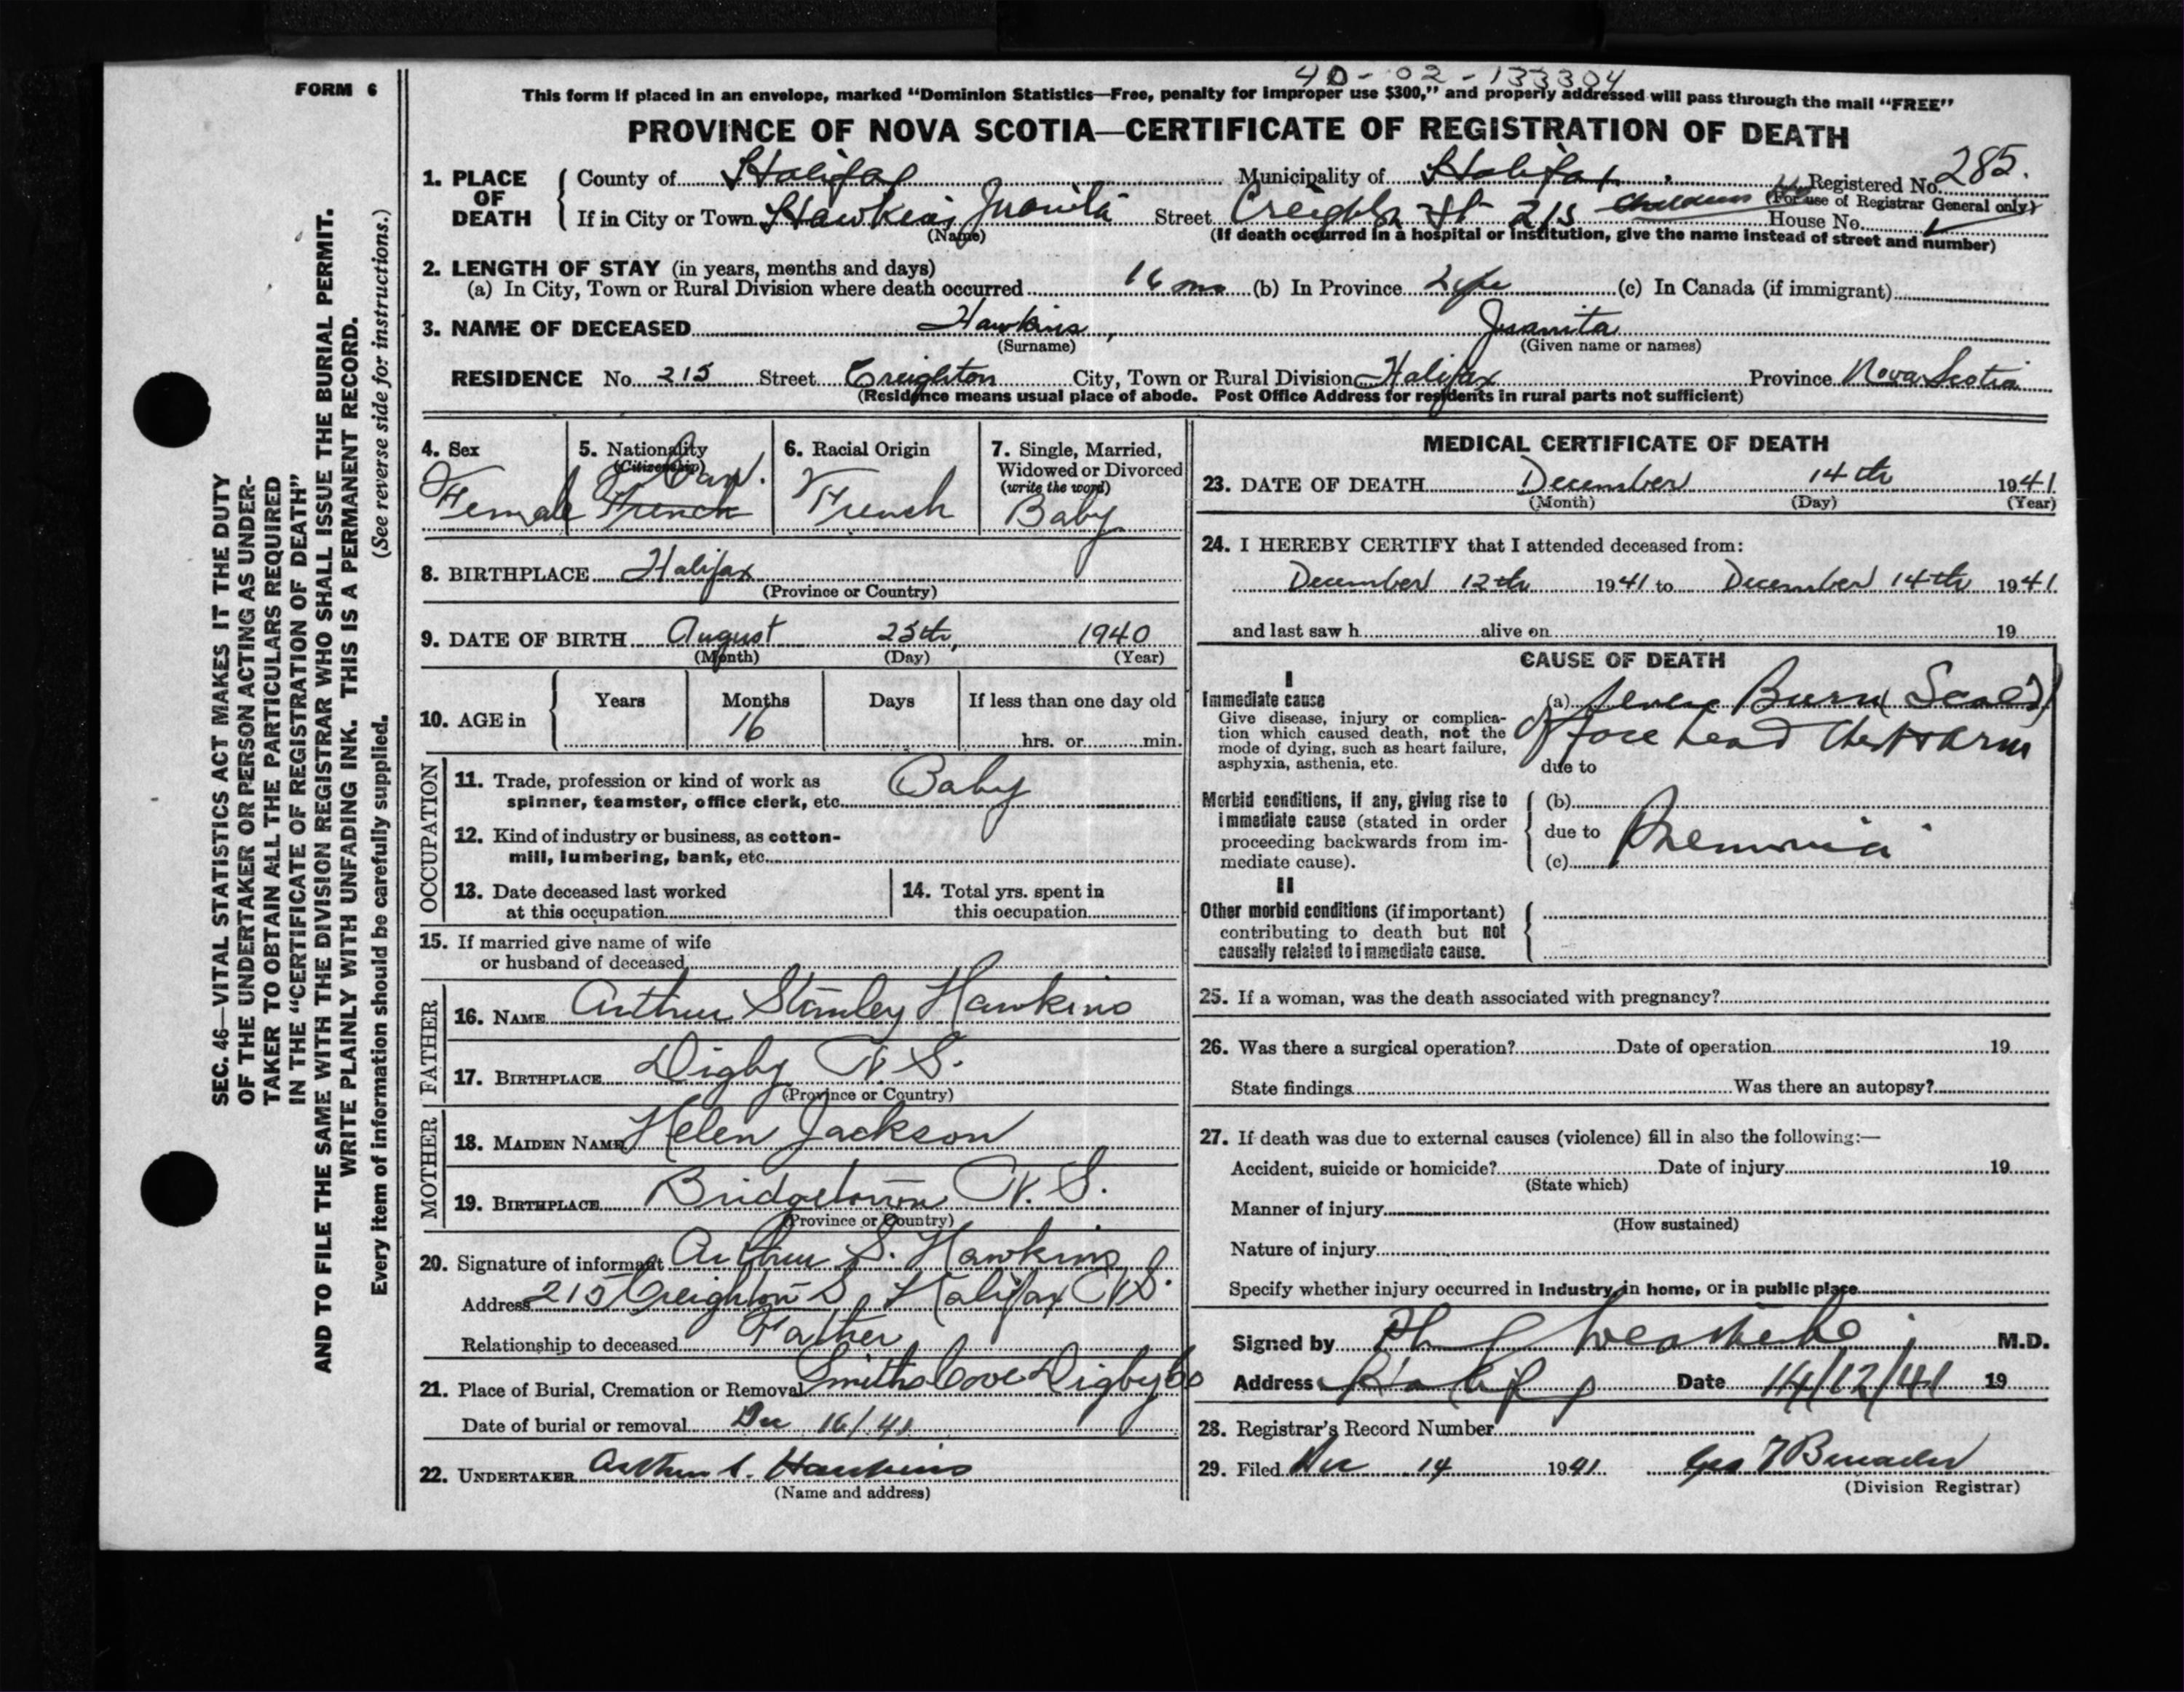 40-02-133304
FORM 6
This form if placed in an envelope, marked "Dominion Statistics—Free, penalty for improper use $300," and properly addressed will pass through the mail "FREE"
PROVINCE OF NOVA SCOTIA—CERTIFICATE OF REGISTRATION OF DEATH
SEC. 46—VITAL STATISTICS ACT MAKES IT THE DUTY
OF THE UNDERTAKER OR PERSON ACTING AS UNDER-
TAKER TO OBTAIN ALL THE PARTICULARS REQUIRED
IN THE "CERTIFICATE OF REGISTRATION OF DEATH"
AND TO FILE THE SAME WITH THE DIVISION REGISTRAR WHO SHALL ISSUE THE BURIAL PERMIT.
WRITE PLAINLY WITH UNFADING INK. THIS IS A PERMANENT RECORD.
Every item of information should be carefully supplied. (See reverse side for instructions.)
1. PLACE OF DEATH
County of Halifax Municipality of Halifax Registered No. 285.
(For use of Registrar General only)
If in City or Town Hawkins, Juanita Street Creighton St 215 Childrens House No.
(Name) (If death occurred in a hospital or institution, give the name instead of street and number)
2. LENGTH OF STAY (in years, months and days)
(a) In City, Town or Rural Division where death occurred 16 mo (b) In Province Life (c) In Canada (if immigrant)
3. NAME OF DECEASED Hawkins, Juanita
(Surname) (Given name or names)
RESIDENCE No. 215 Street Creighton City, Town or Rural Division Halifax Province Nova Scotia
(Residence means usual place of abode. Post Office Address for residents in rural parts not sufficient)
4. Sex
Female
5. Nationality
(Citizenship)
Can.
French
6. Racial Origin
French
7. Single, Married,
Widowed or Divorced
(write the word)
Baby
8. BIRTHPLACE Halifax
(Province or Country)
9. DATE OF BIRTH August 25th, 1940
(Month) (Day) (Year)
10. AGE in
Years Months Days If less than one day old
16 hrs. or min.
OCCUPATION
11. Trade, profession or kind of work as
spinner, teamster, office clerk, etc. Baby
12. Kind of industry or business, as cotton-
mill, lumbering, bank, etc.
13. Date deceased last worked
at this occupation
14. Total yrs. spent in
this occupation
15. If married give name of wife
or husband of deceased
FATHER
16. NAME Arthur Stanley Hawkins
17. BIRTHPLACE Digby N.S.
(Province or Country)
MOTHER
18. MAIDEN NAME Helen Jackson
19. BIRTHPLACE Bridgetown N.S.
(Province or Country)
20. Signature of informant Arthur S. Hawkins
Address 215 Creighton S Halifax N.S.
Relationship to deceased Father
21. Place of Burial, Cremation or Removal Smiths Cove Digby Co
Date of burial or removal Dec 16/41
22. UNDERTAKER Arthur S. Hawkins
(Name and address)
MEDICAL CERTIFICATE OF DEATH
23. DATE OF DEATH December 14th 1941
(Month) (Day) (Year)
24. I HEREBY CERTIFY that I attended deceased from:
December 12th 1941 to December 14th 1941
and last saw h alive on 19
CAUSE OF DEATH
I
Immediate cause
Give disease, injury or complica-
tion which caused death, not the
mode of dying, such as heart failure,
asphyxia, asthenia, etc.
(a) Severe Burn (Scald)
of face head chest & arms
due to
Morbid conditions, if any, giving rise to
immediate cause (stated in order
proceeding backwards from im-
mediate cause).
(b)
due to Pneumonia
(c)
II
Other morbid conditions (if important)
contributing to death but not
causally related to immediate cause.
25. If a woman, was the death associated with pregnancy?
26. Was there a surgical operation? Date of operation 19
State findings Was there an autopsy?
27. If death was due to external causes (violence) fill in also the following:—
Accident, suicide or homicide? Date of injury 19
(State which)
Manner of injury
(How sustained)
Nature of injury
Specify whether injury occurred in Industry, in home, or in public place
Signed by M.D.
Address Halifax Date 14/12/41 19
28. Registrar's Record Number
29. Filed Dec 14 1941 Geo
(Division Registrar)